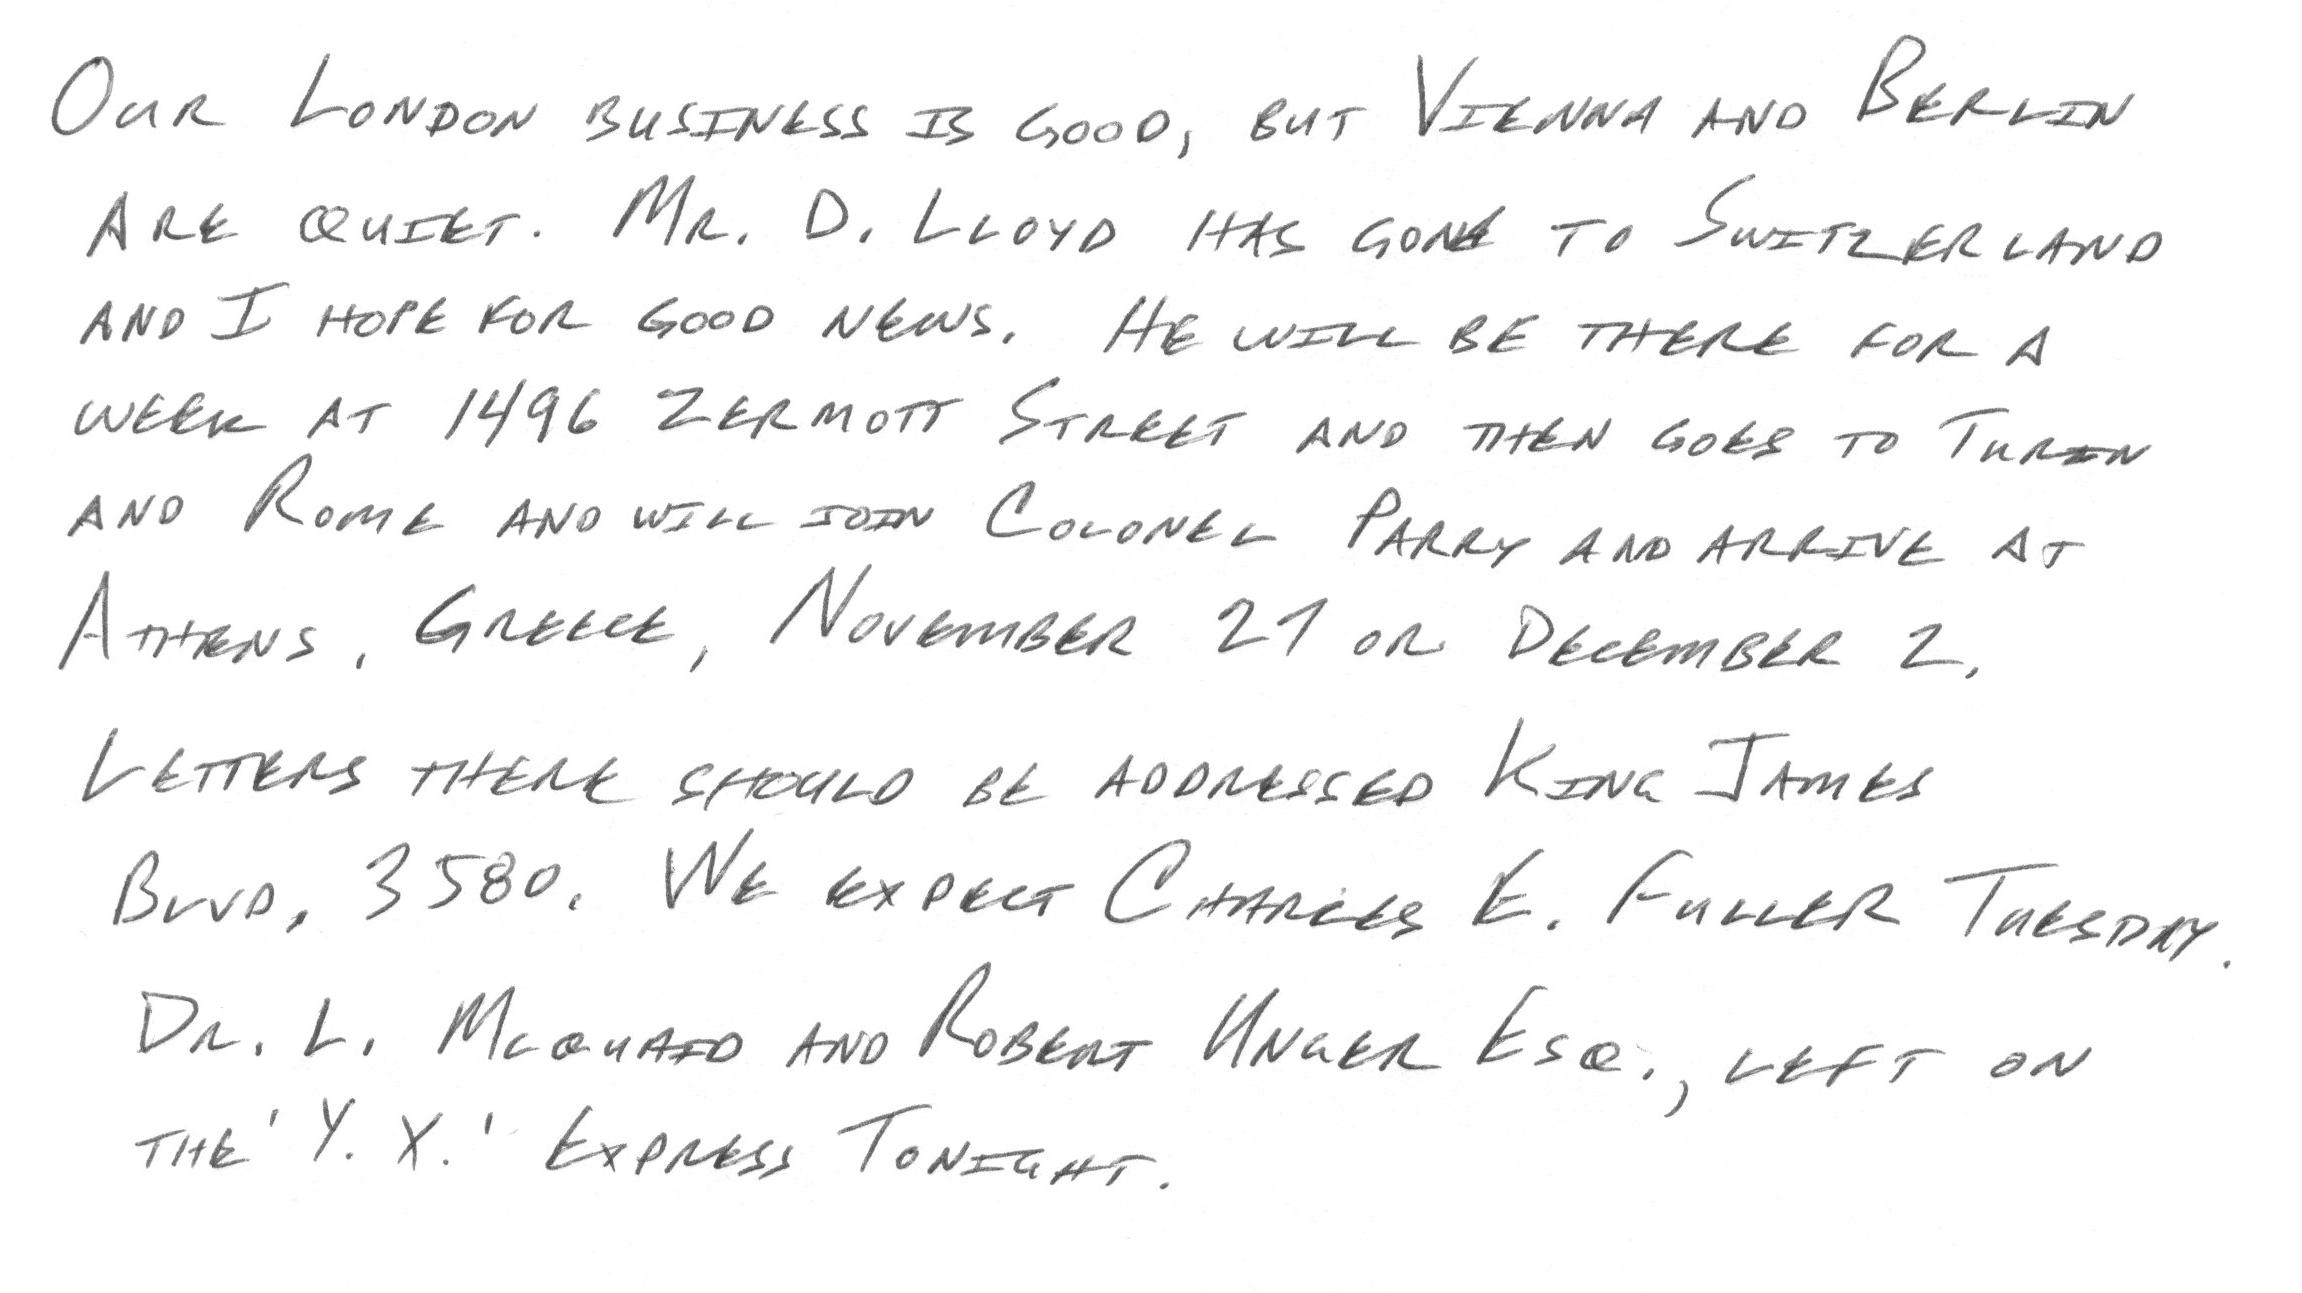 Our London business is good, but Vienna and Berlin
are quiet. Mr. D. Lloyd has gone to Switzerland
and I hope for good news. He will be there for a
week at 1496 Zermott Street and then goes to Turin
and Rome and will join Colonel Parry and arrive at
Athens, Greece, November 27 or December 2.
Letters there should be addressed King James
Blvd, 3580. We expect Charles E. Fuller Tuesday.
Dr. L. McQuaid and Robert Unger Esq., left on
the 'Y. X.' Express Tonight.